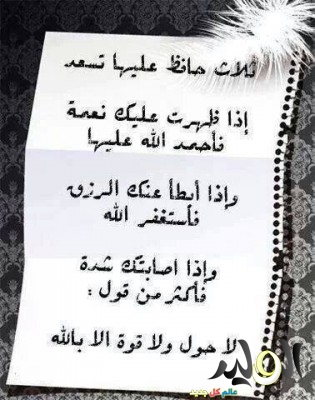 ثلاث حافظ عليها تسعد
إذا ظهرت عليك نعمة
فأحمد الله عليها
وإذا أبطأ عنك الرزق
فأستغفر الله
وإذا اصابتك شدة
فأكثر من قول :
لا حول ولا قوة الا بالله
عالم كل جديد